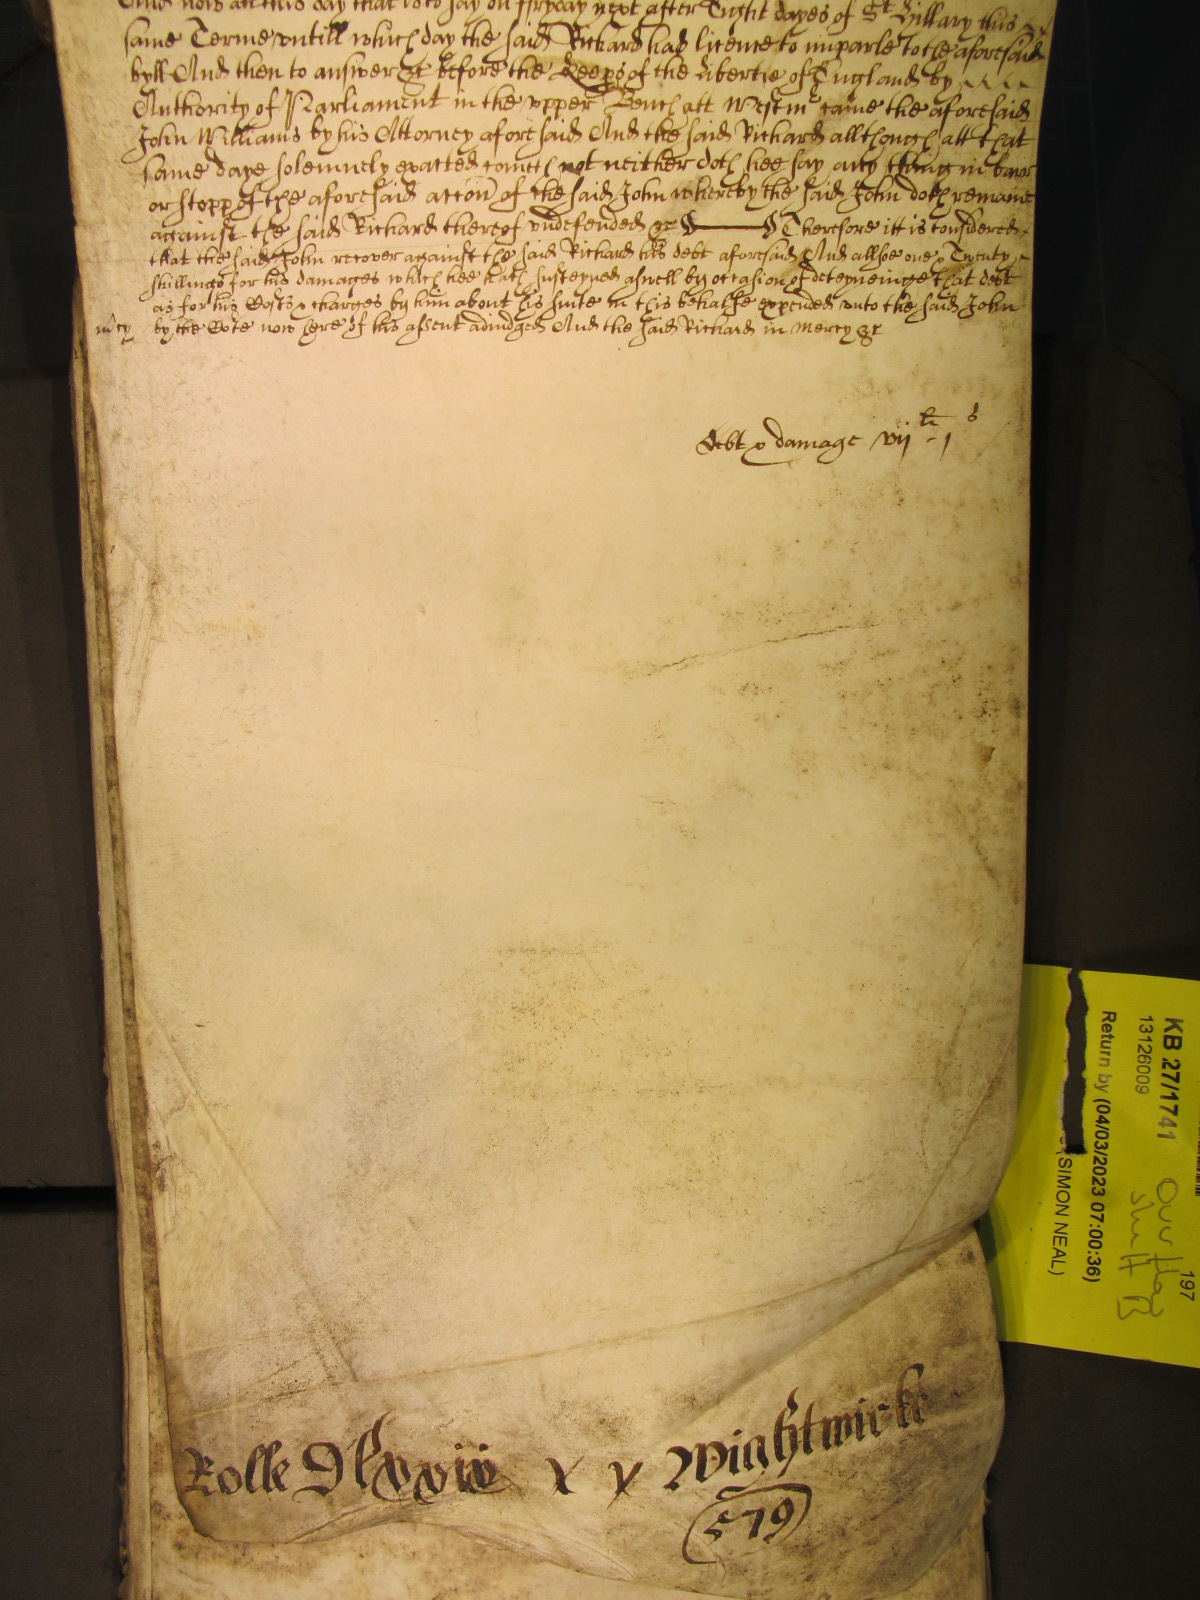 And now att this day that is to say on Fryday next after Eight dayes of St Hillary this
same Terme untill which day the said Richard had licence to imparle to the aforesaid
byll And then to answer &c before the Keeps of the libertie of England by
Authority of Parliament in the upper Bench att Westmr came the aforesaid
John Williams by his Attorney aforesaid And the said Richard allthough att that
same daye solemnely exacted cometh not neither doth hee say any thing in barr
or stopp of the aforesaid accon of the said John whereby the said John doth remaine
against the said Richard thereof undefended &c Therefore itt is considered
that the said John recover against the said Richard his debt aforesaid And allsoe one & Twenty
skillings for his damages which hee hath susteyned aswell by occasion of deteyneinge that debt
as for his Costs & charges by him about his suite in this behalfe expended unto the said John
m'cy by the Cote now here of his assent adiudged And the said Richard in Mercy &c
debt & damage vij li j s
Rolle Dlxxix x x Wightwicke
579
KB 27/1741
13126009
Return by (04/03/2023 07:00:36)
(SIMON NEAL)
197